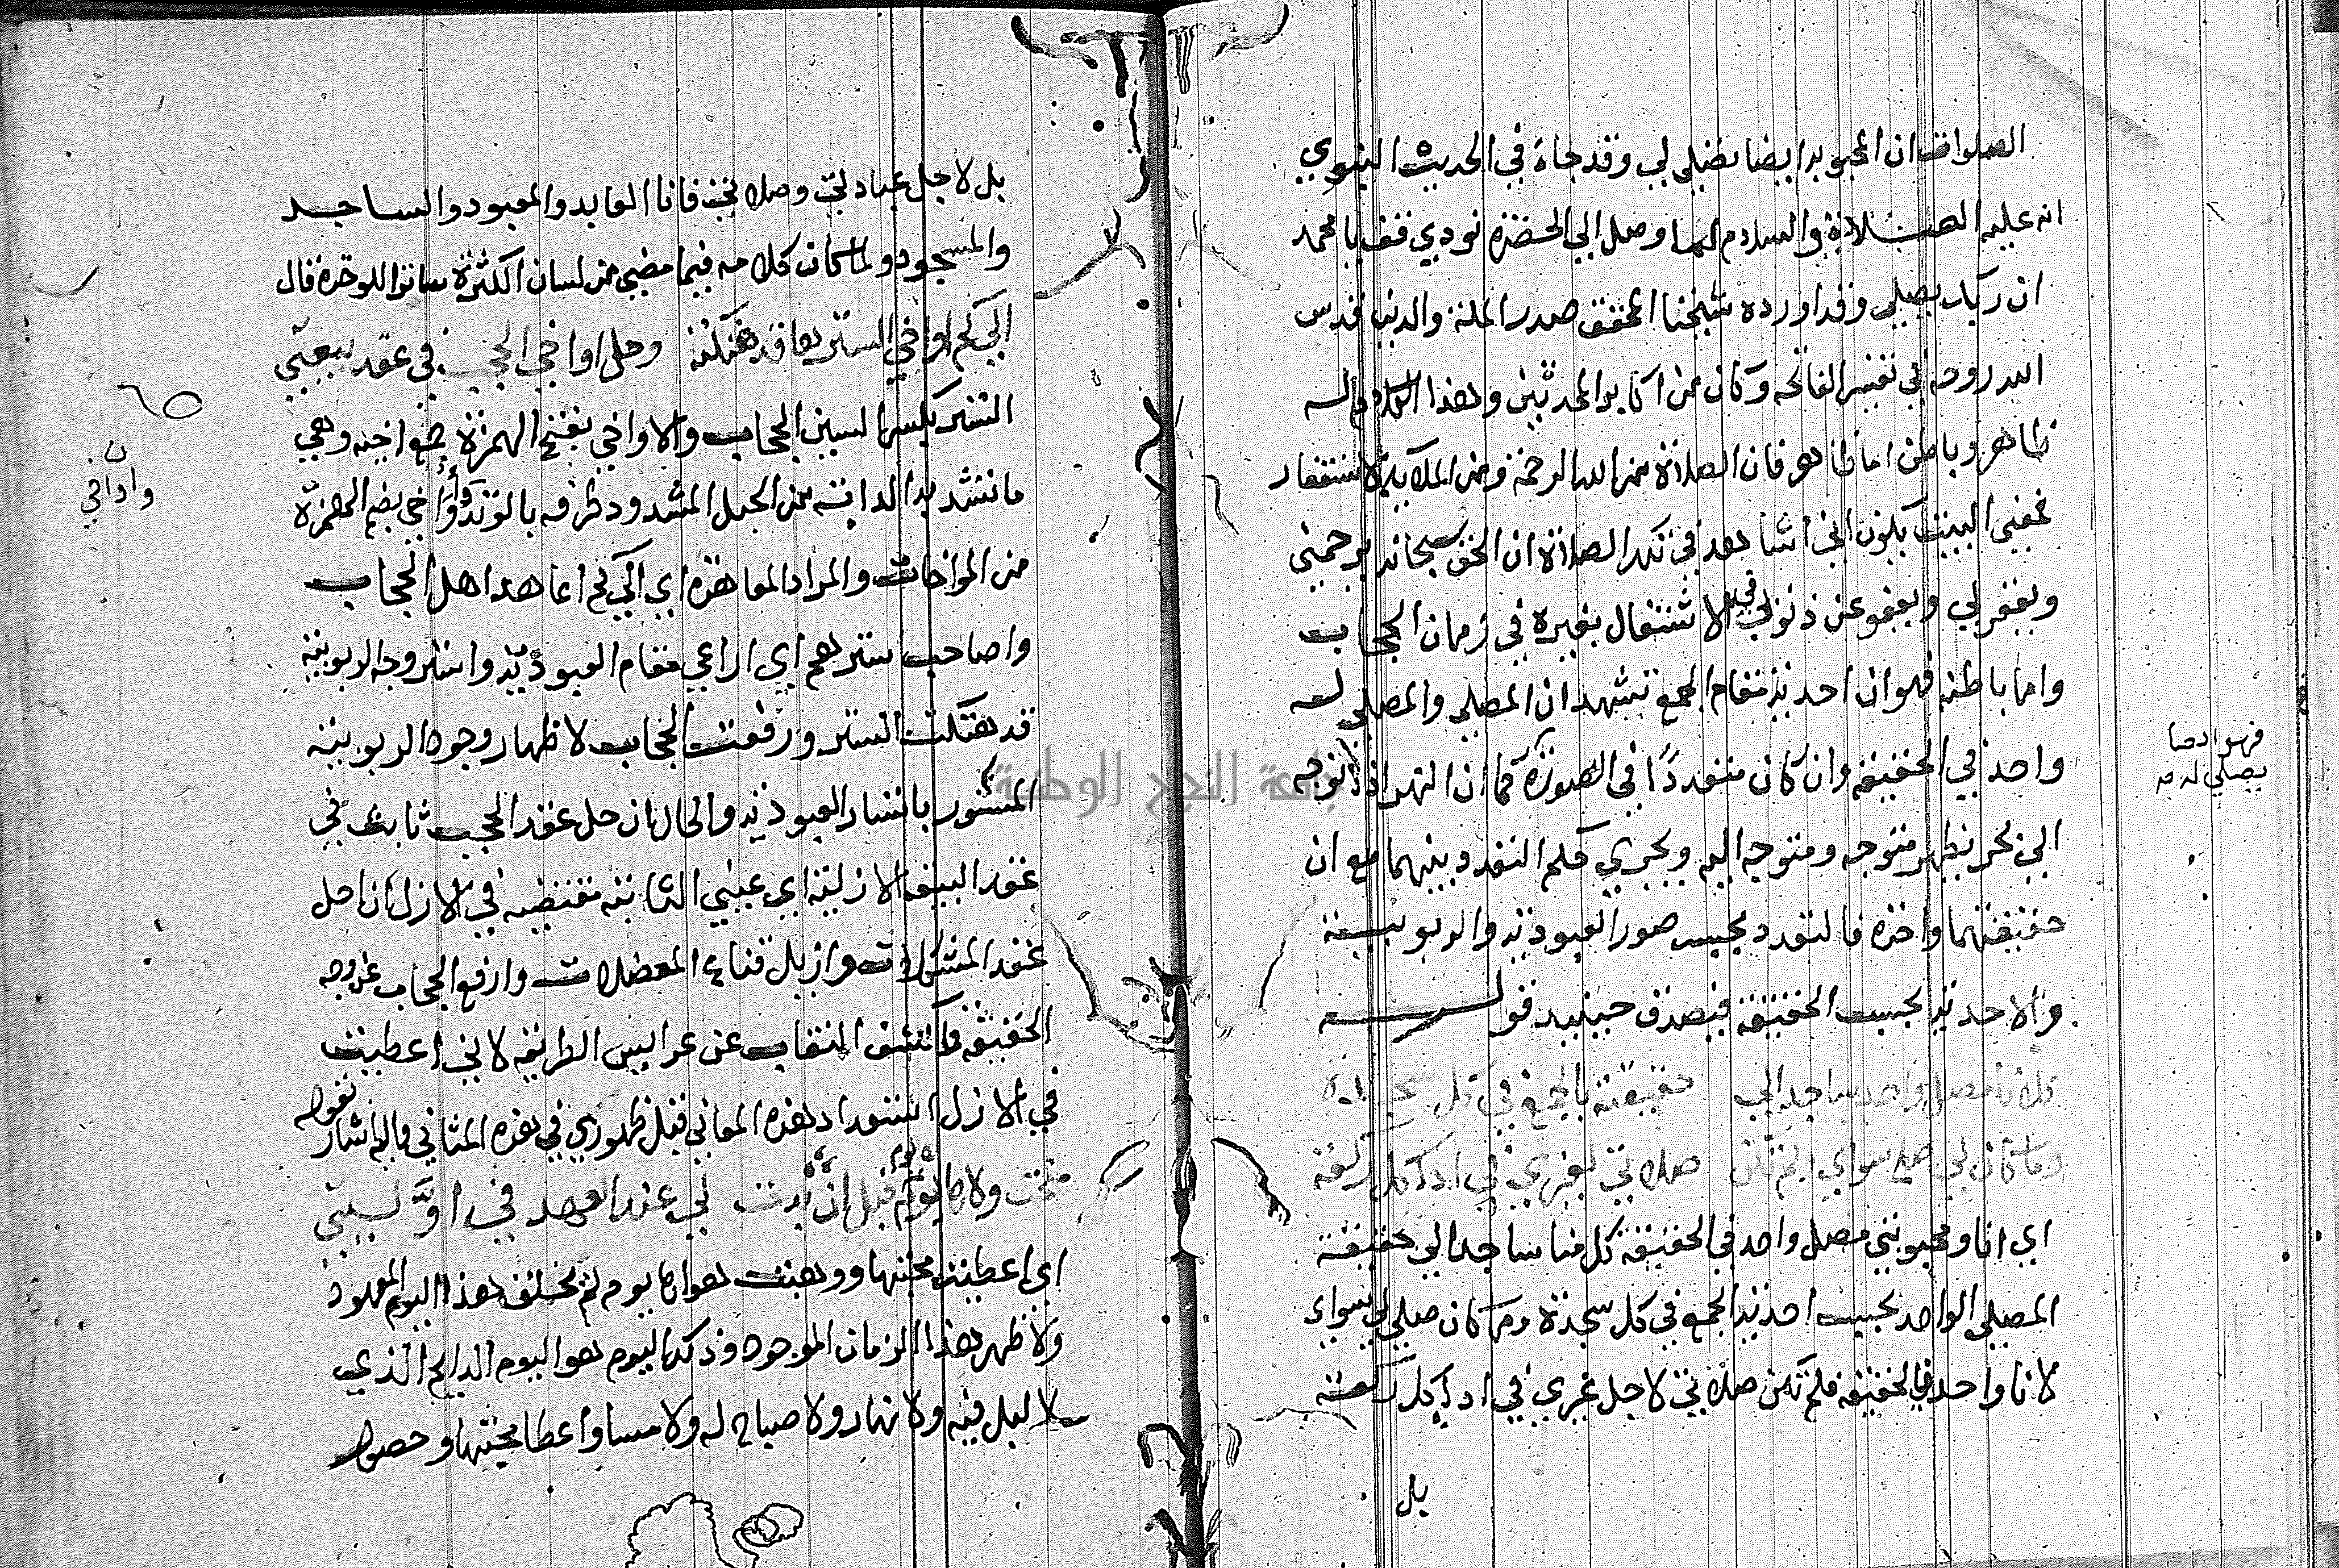 الصلوات ان المحبوبه ايضا تصلي لي وقد جاء في الحديث النبوي
انه عليه الصلاة والسلام لما وصل الي الحضرة نودي قف يا محمد
ان ربك يصلي وقد اورده شيخنا المحقق صدر الملة والدين قدس
الله روحه في تفسير الفاتحه وكان من اكابر المحدثين وهذا الكلام له
ظاهر وباطن اما ظاهره فان الصلاة من الله الرحمة ومن الملايكة الاستغفار
فمعني البيت يكون اني اشاهد في تلك الصلاة ان الحق سبحانه يرحمني
ويغفر لي ويعفو عن ذنوبي في الاشتغال بغيره في زمان الحجاب
واما باطنه فهو ان احدية مقام الجمع تشهد ان المصلي والمصلي له
واحد في الحقيقه وان كان متعددا في الصورة كما ان النهر اذا توجه
الي البحر يظهر متوجه ومتوجه اليه ويجري حكم التعدد بينهما مع ان
حقيقتهما واحدة فالتعدد بحسب صور العبودية والربوبية
والاحدية بحسب الحقيقة فيصدق حينيذ قوله
كلانا مصل واحد ساجد الي حقيقته بالجمع في كل سجدة
وما كان لي صلي سواي ولم تكن صلاتي لغيري في ادا كل ركعة
اي انا ومحبوبتي مصل واحد في الحقيقة كل منا ساجد الي حقيقة
المصلي الواحد بحسب احدية الجمع في كل سجدة وما كان صلي لي سواي
لانا واحد في الحقيقه فلم تكن صلاتي لاجل غيري في ادا كل ركعة
بل
فهو ايضا
يصلي له
بل لاجل عبادتي وصلاتي فانا العابد والمعبود والساجد
والمسجود ولما كان كلامه فيما مضي من لسان الكثرة ساترا للوحدة قال
الي كم اواخي الستر ها قد هتكته وحل اواخي الحجب في عقد بيعتي
الستر بكسر السين الحجاب والاواخي بفتح الهمزة جمع اخيه وهي
ما تشد به الدابة من الحبل المشدود طرفه بالوتد واواخي بضم الهمزة
من المواخات والمراد المعاهدة اي الي كم اعاهد اهل الحجاب
واصاحب سترهم اي اراعي مقام العبودية واستر وجه الربوبية
قد هتكت الستر ورفعت الحجاب لاظهار وجوه الربوبية
المستور باستار العبودية والحال ان حل عقد الحجب ثابت في
عقد البيعة الازلية اي عيني الثابتة مقتضيه في الازل ان احل
عقد المشكلات وازيل قناع المعضلات وارفع الحجاب عن وجه
الحقيقة واكشف النقاب عن عرايس الطريقه لاني اعطيت
في الازل استعداد هذه المعاني قبل ظهوري في هذه المثاني واليه اشار بقوله
منحت ولاها يوم لا يوم قبل ان بدت لي عند العهد في اوليتي
اي اعطيت محبتها ووهبت هواها يوم لم يخلق هذا اليوم المعهود
ولا ظهر هذا الزمان الموجود وذلك اليوم هو اليوم الدايم الذي
لا ليل فيه ولا نهار ولا صباح له ولا مسا واعطا محبتها وحصول
واواخي
جامعة النجاح الوطنية